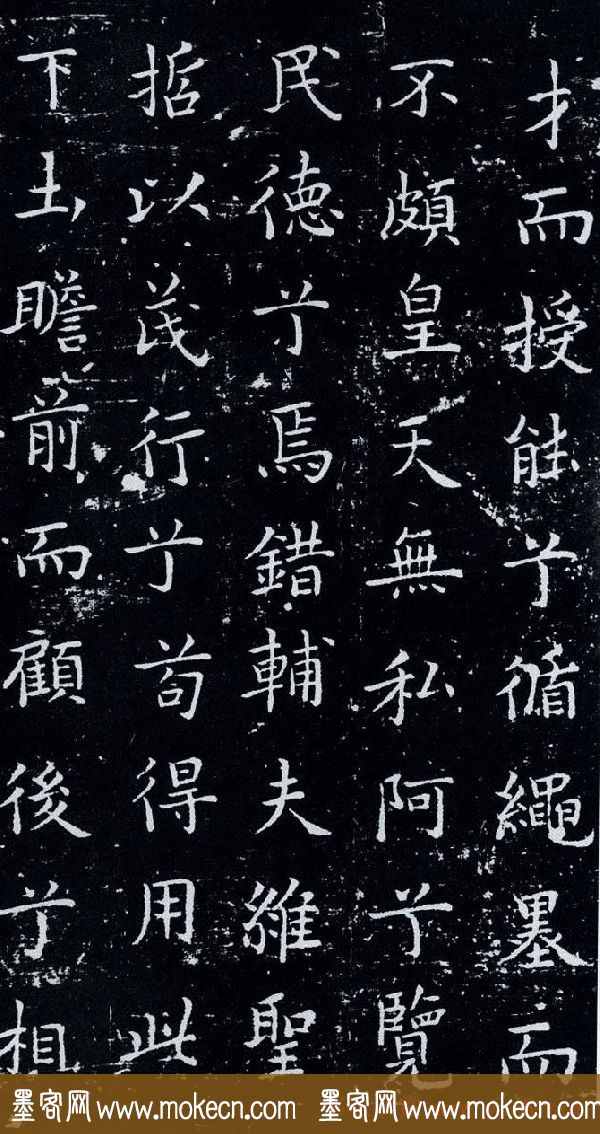 才而授能兮循繩墨而
不頗皇天無私阿兮覽
民德兮焉錯輔夫維聖
哲以茂行兮苟得用此
下土瞻前而顧後兮相
墨客网 www.mokecn.com 墨客网 www.mokecn.com